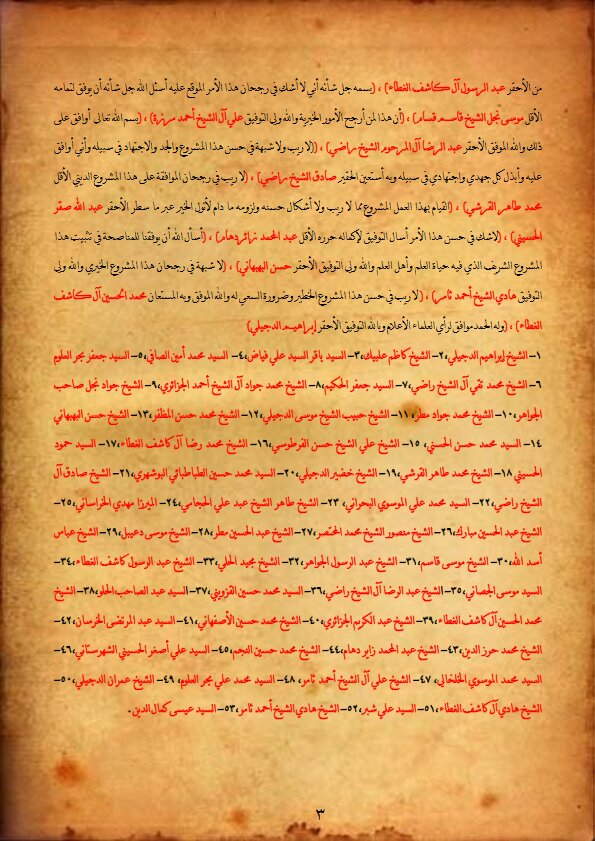 من الأحقر عبد الرسول آل كاشف الغطاء) ، (بسمه جل شأنه أني لا أشك في رجحان هذا الأمر الموقع عليه أسئل الله جل شأنه أن يوفق لتمامه
الأقل موسى نجل الشيخ قاسم قسام) ، (أن هذا لمن أرجح الأمور الخيرية والله ولي التوفيق علي آل الشيخ أحمد مرزة) ، (بسم الله تعالى أوافق على
ذلك والله الموفق الأحقر عبد الرضا آل المرحوم الشيخ راضي) ، ((لا ريب ولا شبهة في حسن هذا المشروع والجد والاجتهاد في سبيله وأني أوافق
عليه وأبذل كل جهدي واجتهادي في سبيله وبه أستعين الحقير صادق الشيخ راضي) ، (لا ريب في رجحان الموافقة على هذا المشروع الديني الأقل
محمد طاهر القرشي) ، (القيام بهذا العمل المشروع مما لا ريب ولا أشكال حسنه ولزومه ما دام لأول الخير عبر ما سطر الأحقر عبد الله صقر
الحسيني) ، (لاشك في حسن هذا الأمر أسال التوفيق لإكماله حرره الأقل عبد المحمد زائر دهام) ، (أسأل الله أن يوفقنا للمناصحة في تثبيت هذا
المشروع الشريف الذي فيه حياة العلم وأهل العلم والله ولي التوفيق الأحقر حسن البهبهاني) ، (لا شبهة في رجحان هذا المشروع الخيري والله ولي
التوفيق هادي الشيخ أحمد ثامر) ، (لا ريب في حسن هذا المشروع الخطير وضرورة السعي له والله الموفق وبه المستعان محمد الحسين آل كاشف
الغطاء) ، (وله الحمد موافق لرأي العلماء الأعلام وبالله التوفيق الأحقر إبراهيم الدجيلي)
١- الشيخ إبراهيم الدجيلي، ٢- الشيخ كاظم عليبيك، ٣- السيد باقر السيد علي فياض، ٤- السيد محمد أمين الصافي، ٥- السيد جعفر بحر العلوم
٦- الشيخ محمد تقي آل الشيخ راضي، ٧- السيد جعفر الحكيم، ٨- الشيخ محمد جواد آل الشيخ أحمد الجزائري، ٩- الشيخ جواد نجل صاحب
الجواهر، ١٠- الشيخ محمد جواد مطر، ١١- الشيخ حبيب الشيخ موسى الدجيلي، ١٢- الشيخ محمد حسن المظفر، ١٣- الشيخ حسن البهبهاني
١٤- السيد محمد حسن الحسني، ١٥- الشيخ علي الشيخ حسن الفرطوسي، ١٦- الشيخ محمد رضا آل كاشف الغطاء، ١٧- السيد حمود
الحسيني ١٨- الشيخ محمد طاهر القرشي، ١٩- الشيخ خضير الدجيلي، ٢٠- السيد محمد حسين الطباطبائي البوشهري، ٢١- الشيخ صادق آل
الشيخ راضي، ٢٢- السيد محمد علي الموسوي البحراني، ٢٣- الشيخ طاهر الشيخ عبد علي الحجامي، ٢٤- الميرزا مهدي الخراساني، ٢٥-
الشيخ عبد الحسين مبارك، ٢٦- الشيخ منصور الشيخ محمد المحتصر، ٢٧- الشيخ عبد الحسين مطر، ٢٨- الشيخ موسى دعيبل، ٢٩- الشيخ عباس
أسد الله، ٣٠- الشيخ موسى قاسم، ٣١- الشيخ عبد الرسول الجواهر، ٣٢- الشيخ مجيد الحلي، ٣٣- الشيخ عبد الرسول كاشف الغطاء، ٣٤-
السيد موسى الجصاني، ٣٥- الشيخ عبد الرضا آل الشيخ راضي، ٣٦- السيد محمد حسين القزويني، ٣٧- السيد عبد الصاحب الحلو، ٣٨- الشيخ
محمد الحسين آل كاشف الغطاء، ٣٩- الشيخ عبد الكريم الجزائري، ٤٠- الشيخ محمد حسين الأصفهاني، ٤١- السيد عبد المرتضى الخرسان، ٤٢-
الشيخ محمد حرز الدين، ٤٣- الشيخ عبد المحمد زاير دهام، ٤٤- الشيخ محمد حسين النجم، ٤٥- السيد علي أصغر الحسيني الشهرستاني، ٤٦-
السيد محمد الموسوي الخلخالي، ٤٧- الشيخ علي آل الشيخ أحمد ثامر، ٤٨- السيد محمد علي بحر العلوم، ٤٩- الشيخ عمران الدجيلي، ٥٠-
الشيخ هادي آل كاشف الغطاء، ٥١- السيد علي شبر، ٥٢- الشيخ هادي الشيخ أحمد ثامر، ٥٣- السيد عيسى كمال الدين.
٣